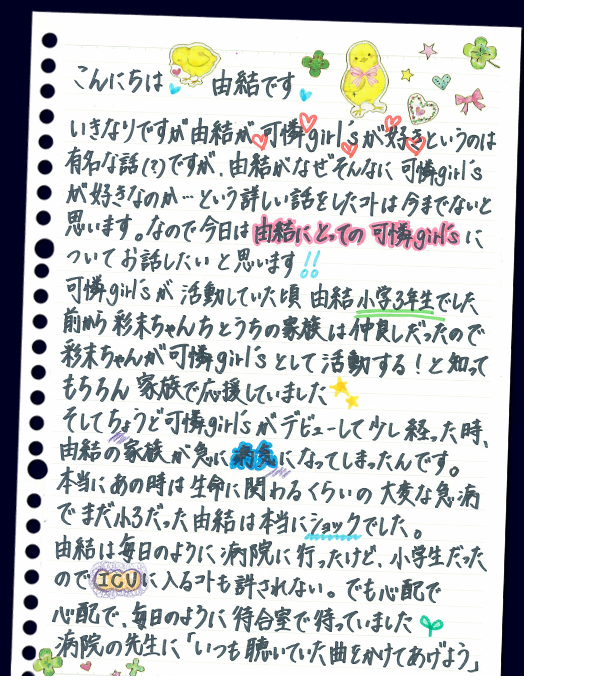 こんにちは 由結です
いきなりですが由結が可憐girl'sが好きというのは
有名な話(?)ですが、由結がなぜそんなに可憐girl's
が好きなのか…という詳しい話をしたコトは今までないと
思います。なので今日は由結にとっての可憐girl'sに
ついてお話したいと思います!!
可憐girl'sが活動していた頃由結小学3年生でした
前から彩未ちゃんちとうちの家族は仲良しだったので
彩未ちゃんが可憐girl'sとして活動する!と知って
もちろん家族で応援していました
そしてちょうど可憐girl'sがデビューして少し経った時、
由結の家族が急に病気になってしまったんです。
本当にあの時は生命に関わるくらいの大変な急病
でまだ小3だった由結は本当にショックでした。
由結は毎日のように病院に行ったけど、小学生だった
のでICUに入るコトも許されない。でも心配で
心配で、毎日のように待合室で待っていました
病院の先生に「いつも聴いていた曲をかけてあげよう」